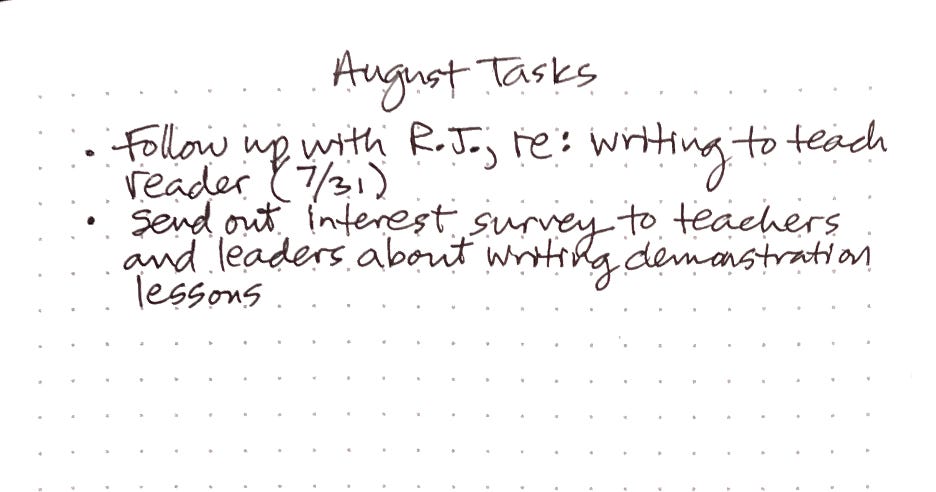 August Tasks
• Follow up with R.J., re: writing to teach
reader (7/31)
• Send out interest survey to teachers
and leaders about writing demonstration
lessons